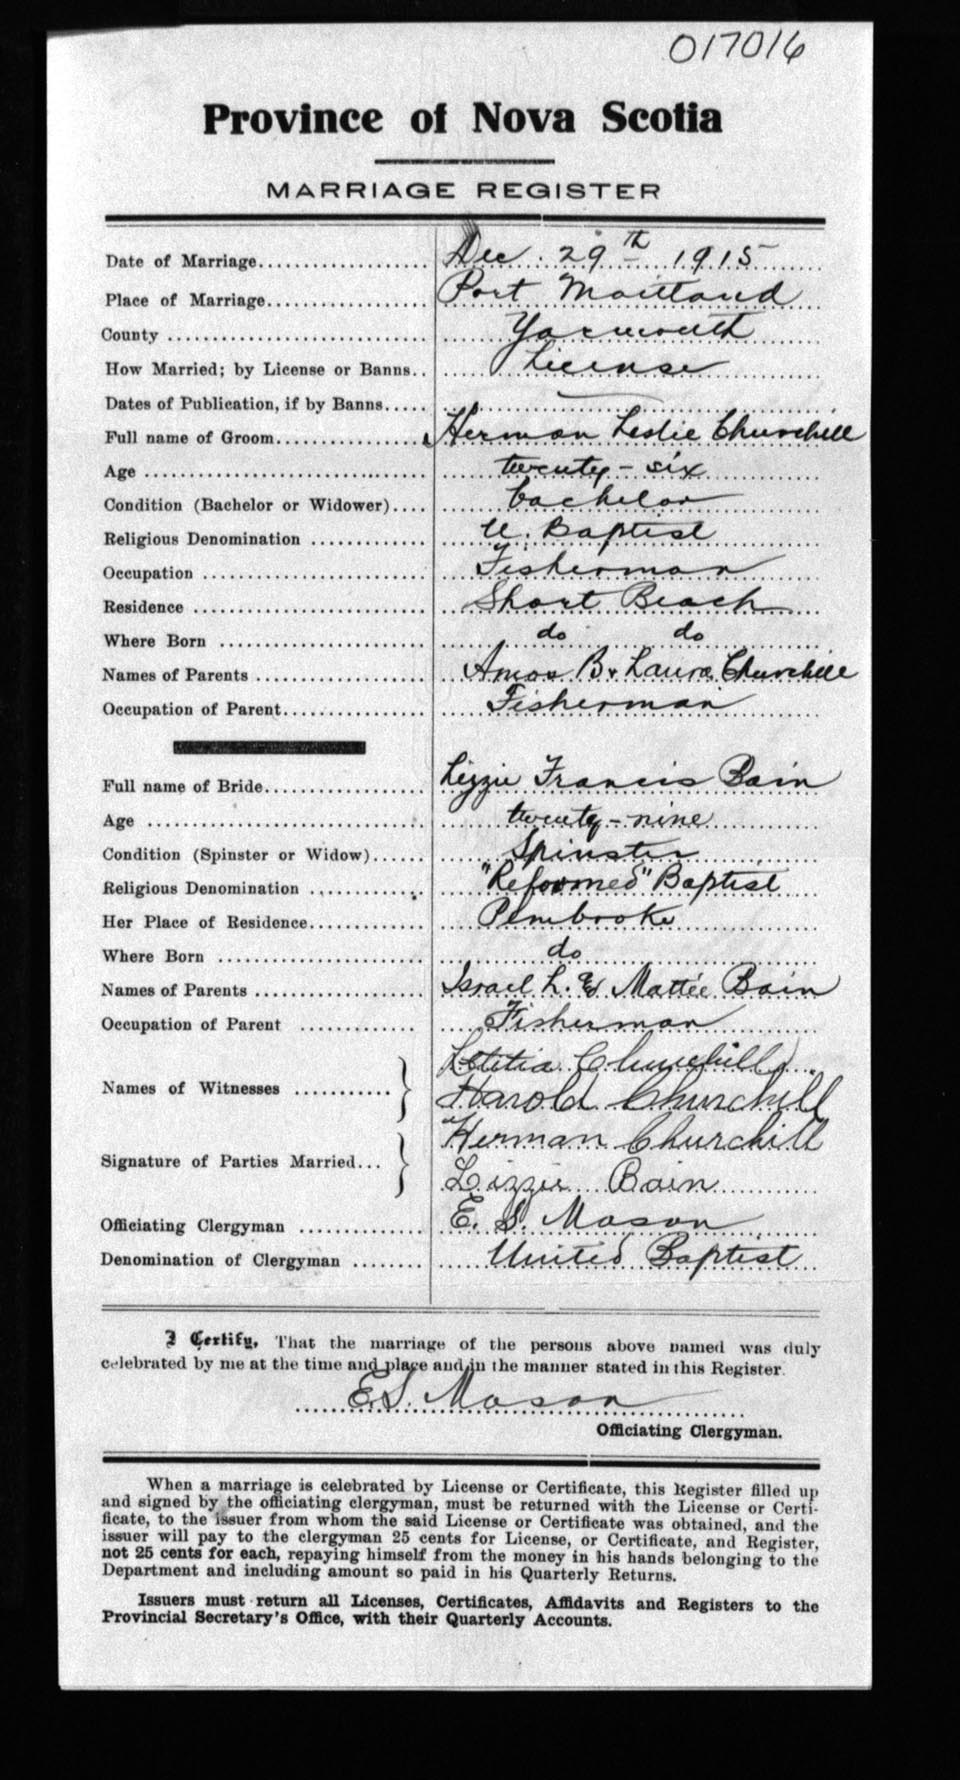 017016
Province of Nova Scotia
MARRIAGE REGISTER
Date of Marriage.................... Dec. 29th 1915
Place of Marriage................... Port Maitland
County ............................. Yarmouth
How Married; by License or Banns.. License
Dates of Publication, if by Banns..... —
Full name of Groom.................. Herman Leslie Churchill
Age ................................ twenty-six
Condition (Bachelor or Widower).... bachelor
Religious Denomination ............. U. Baptist
Occupation ......................... Fisherman
Residence .......................... Short Beach
Where Born ......................... do do
Names of Parents ................... Amos B & Laura Churchill
Occupation of Parent................ Fisherman
Full name of Bride.................. Lizzie Francis Bain
Age ................................ twenty-nine
Condition (Spinster or Widow)...... Spinster
Religious Denomination ............. "Reformed" Baptist
Her Place of Residence.............. Pembroke
Where Born ......................... do
Names of Parents ................... Israel L. & Mattie Bain
Occupation of Parent ............... Fisherman
Letitia Churchill
Names of Witnesses ........... }
Harold Churchill
Herman Churchill
Signature of Parties Married... }
Lizzie Bain
Officiating Clergyman .............. E. S. Mason
Denomination of Clergyman ........ United Baptist
I Certify, That the marriage of the persons above named was duly
celebrated by me at the time and place and in the manner stated in this Register.
E. S. Mason
Officiating Clergyman.
When a marriage is celebrated by License or Certificate, this Register filled up
and signed by the officiating clergyman, must be returned with the License or Certi-
ficate, to the issuer from whom the said License or Certificate was obtained, and the
issuer will pay to the clergyman 25 cents for License, or Certificate, and Register,
not 25 cents for each, repaying himself from the money in his hands belonging to the
Department and including amount so paid in his Quarterly Returns.
Issuers must return all Licenses, Certificates, Affidavits and Registers to the
Provincial Secretary's Office, with their Quarterly Accounts.